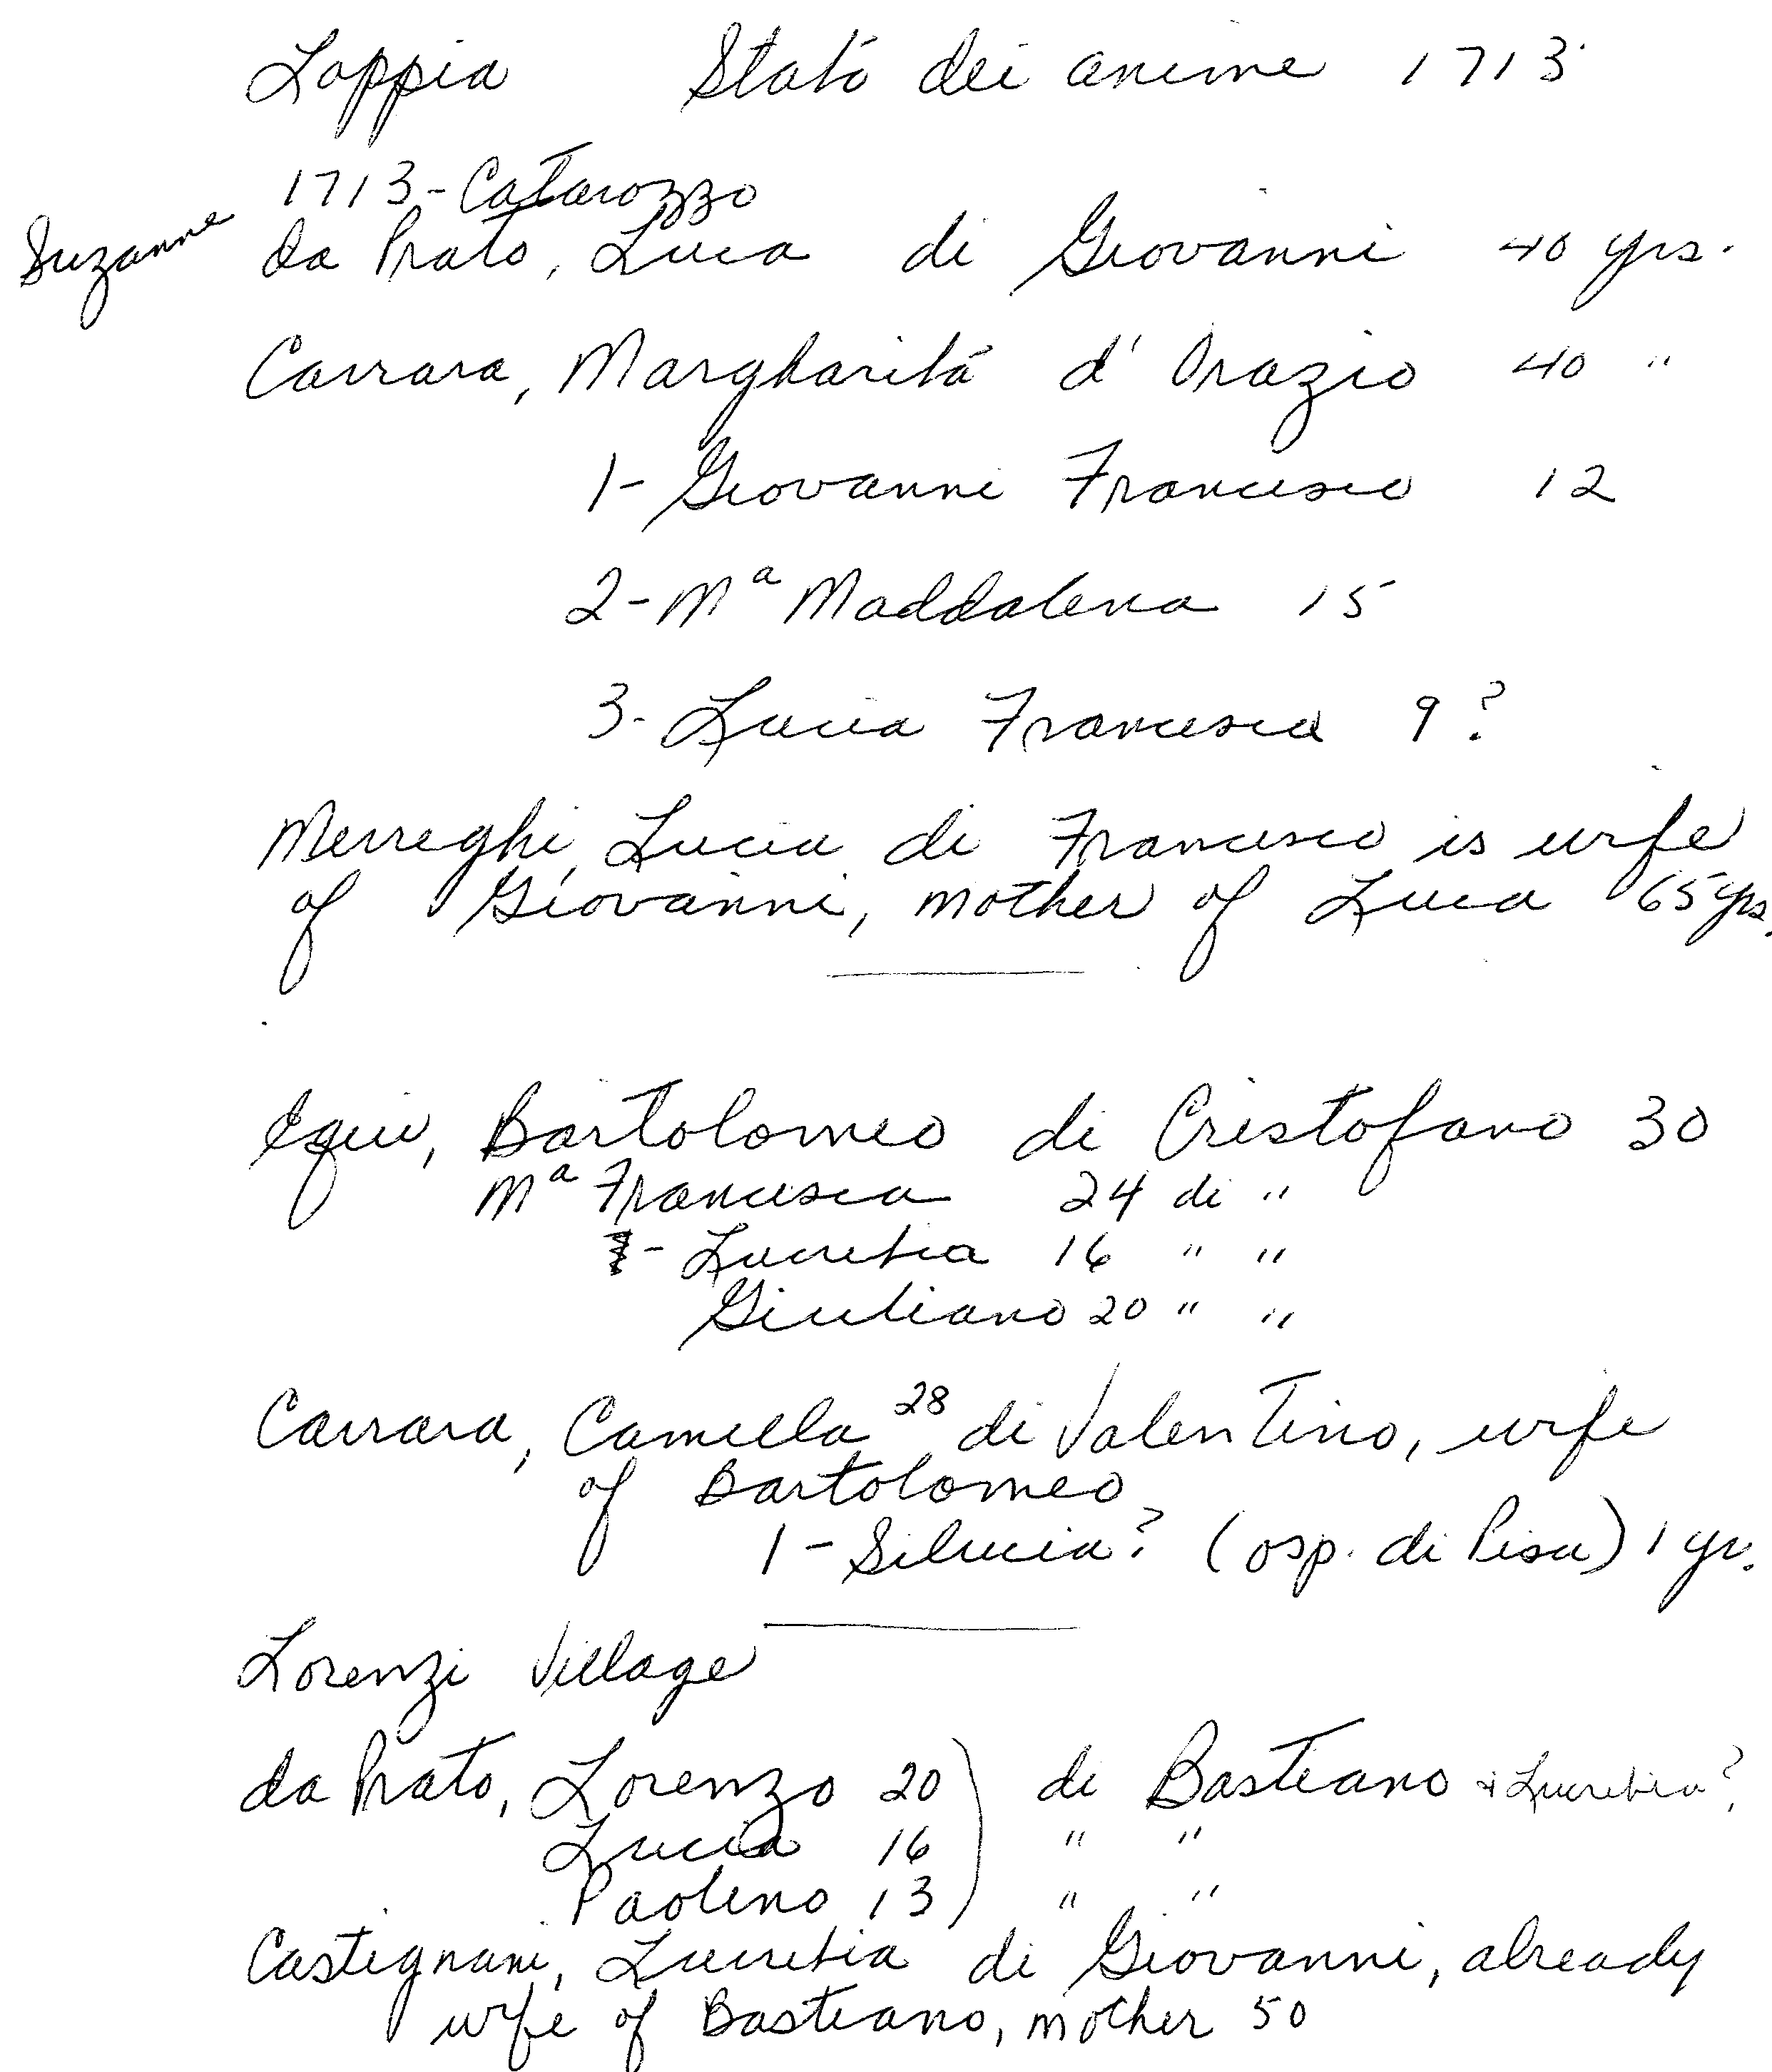 Loppia Stató dei anime 1713
1713 - Catarozzo
Suzanne da Prato, Luca di Giovanni 40 yrs.
Carrara, Margharitá d' Orazio 40 "
1- Giovanni Francesco 12
2- Mᵃ Maddalena 15
3- Lucia Francesca 9?
Merreghi, Lucia di Francesco is wife
of Giovanni, mother of Luca 65 yrs.
Equi, Bartolomeo di Cristofano 30
Mᵃ Francesca 24 di "
- Lucretia 16 " "
Giuliano 20 " "
Carrara, Camilla 28 di Valentino, wife
of Bartolomeo
1 - Silucia? (osp. di Pisa) 1 yr.
Lorenzi Village
da Prato, Lorenzo 20 ) di Bastiano + Lucretia?
Lucia 16 " "
Paolino 13 " "
Castignani, Lucretia di Giovanni, already
wife of Bastiano, mother 50